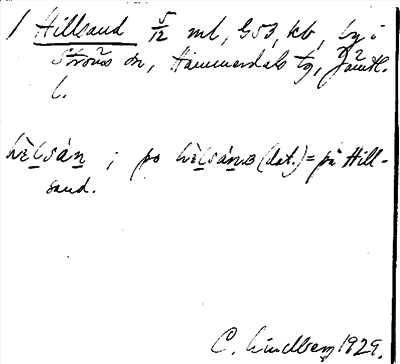 1 Hillsand 5/12 ml, G53, kb, by i
Ströms sn, Hammerdals tg, Jämtl.
l.
hèl̠sán̠ ; po hèl̠sán̠ɞ (dat.) = på Hill-
sand.
C. Lindberg 1929.